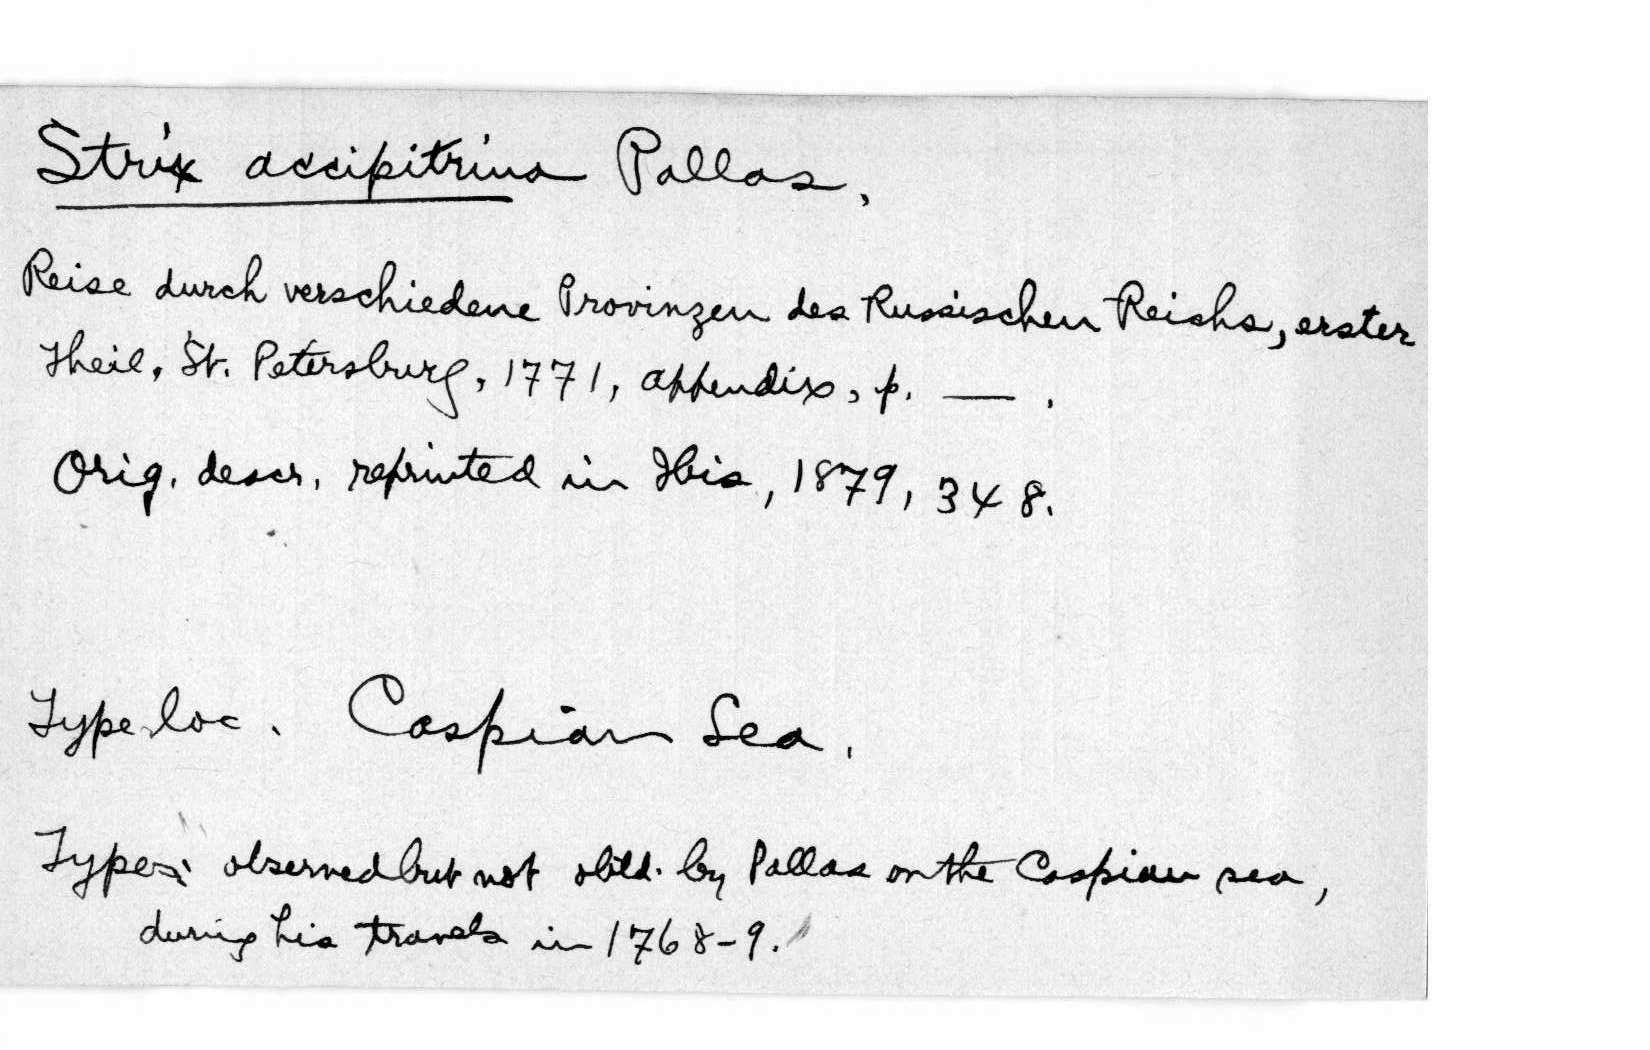 Strix accipitrina Pallas,
Reise durch verschiedene Provinzen des Russischen Reichs, erster
Theil, St. Petersburg, 1771, appendix, p. — .
Orig. descr. reprinted in Ibis, 1879, 348.
Type loc. Caspian Sea.
Types: observed but not obtd. by Pallas on the Caspian sea,
during his travels in 1768-9.